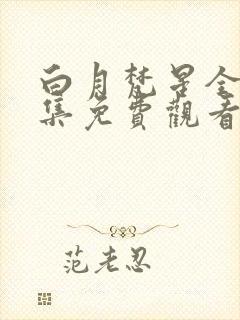 白月梵星全
集免費觀看
范老忍